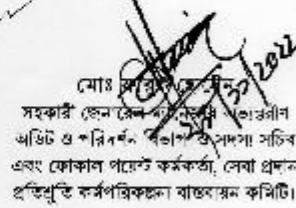 মোঃ
সহকারী জেনারেল ম্যানেজার অভ্যন্তরীণ
অডিট ও পরিদর্শন বিভাগ ও সদস্য সচিব
এবং ফোকাল পয়েন্ট কর্মকর্তা, সেবা প্রদান
প্রতিশ্রুতি কর্মপরিকল্পনা বাস্তবায়ন কমিটি।